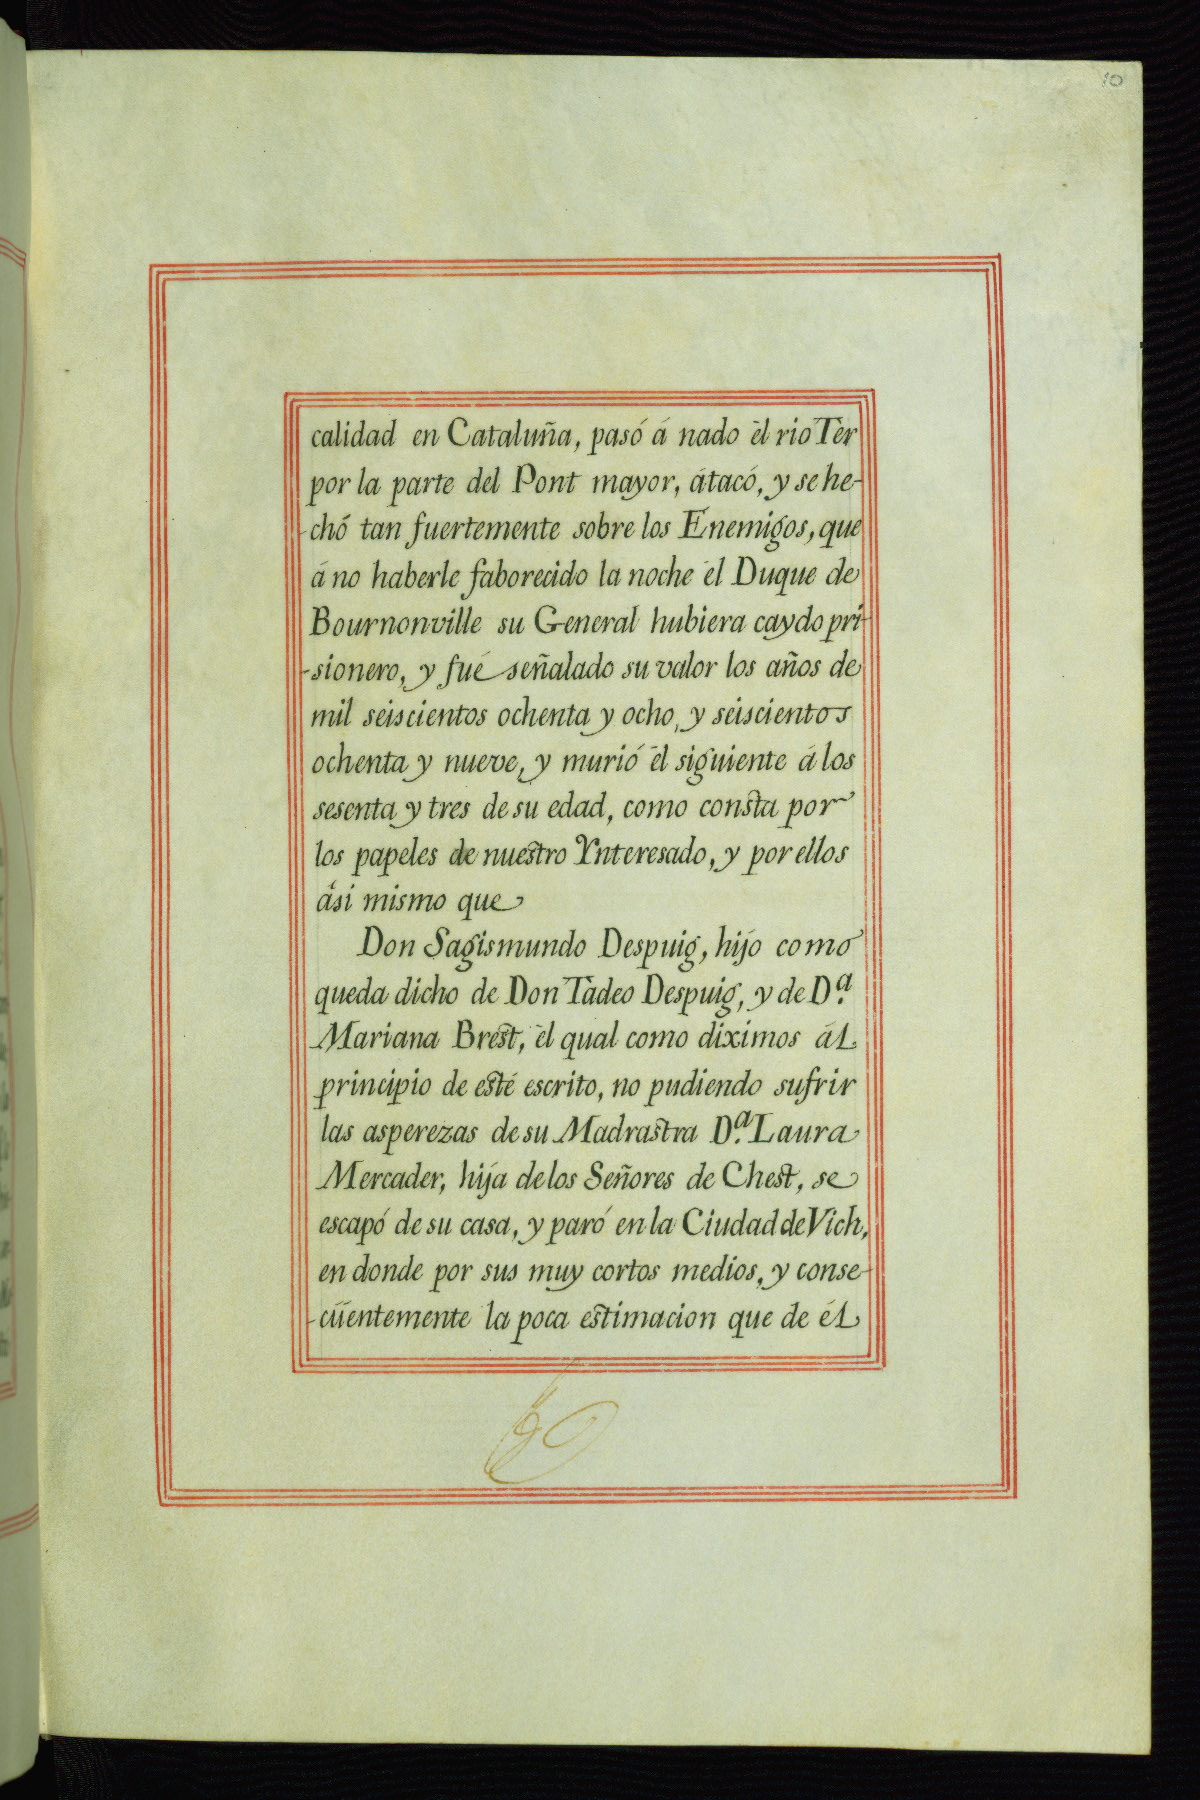 10
calidad en Cataluña, pasó á nado él rio Tèr
por la parte del Pont mayor, átacó, y se he-
-chó tan fuertemente sobre los Énemigos, que
á no haberle faborecido la noche él Duque de
Bournonville su General hubiera caydo pri-
-sionero, y fué señalado su valor los años de
mil seiscientos ochenta y ocho, y seiscientos
ochenta y nueve, y murió él siguiente á los
sesenta y tres de su edad, como consta por
los papeles de nuestro Ynteresado, y por ellos
ási mismo que
Don Sagismundo Despuig, hijo como
queda dicho de Don Tàdeo Despuig, y de D.ª
Mariana Brest, él qual como diximos ál
principio de esté escrito, no pudiendo sufrir
las asperezas de su Madrastra D.ª Laura
Mercader, hija de los Señores de Chest, se
escapó de su casa, y paró en la Ciudad de Vich,
en donde por sus muy cortos medios, y conse-
-cüentemente la poca estimacion que de él